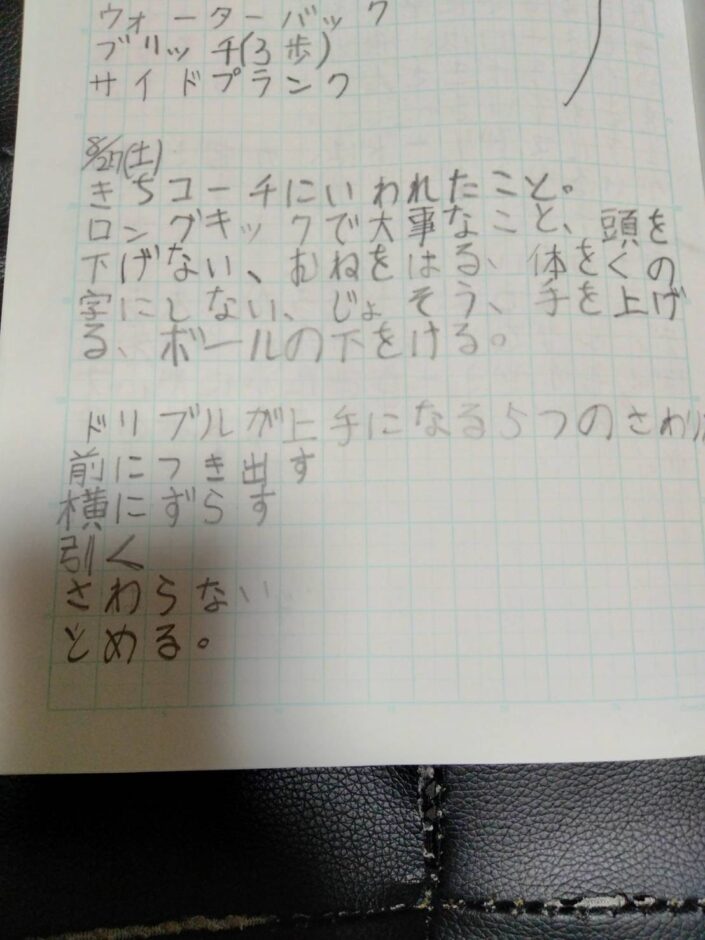 ウォーターバック
ブリッチ(3歩)
サイドプランク
8/27(土)
きちコーチにいわれたこと。
ロングキックで大事なこと、頭を
下げない、むねをはる、体をくの
字にしない、じょそう、手を上げ
る、ボールの下をける。
ドリブルが上手になる5つのさわり
前につき出す
横にずらす
引く
さわらない
とめる。